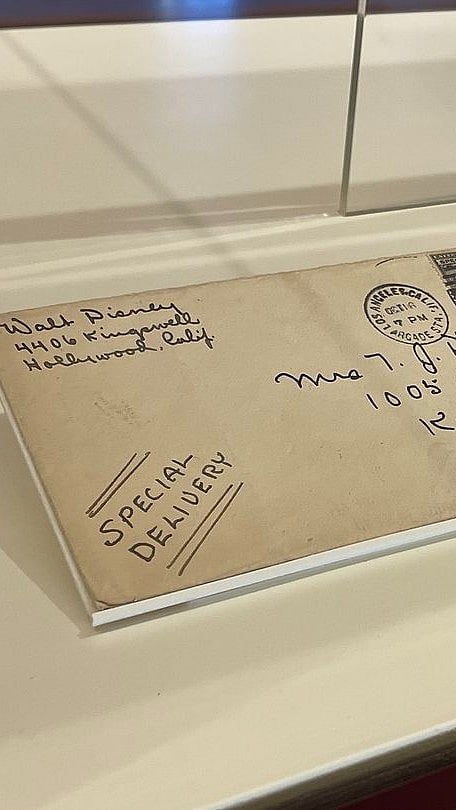 Walt Disney
4406 Kingswell
Hollywood, Calif
LOS ANGELES, CALIF.
OCT 16
7 PM
ARCADE STA.
Mrs T. J.
1005
K
SPECIAL
DELIVERY